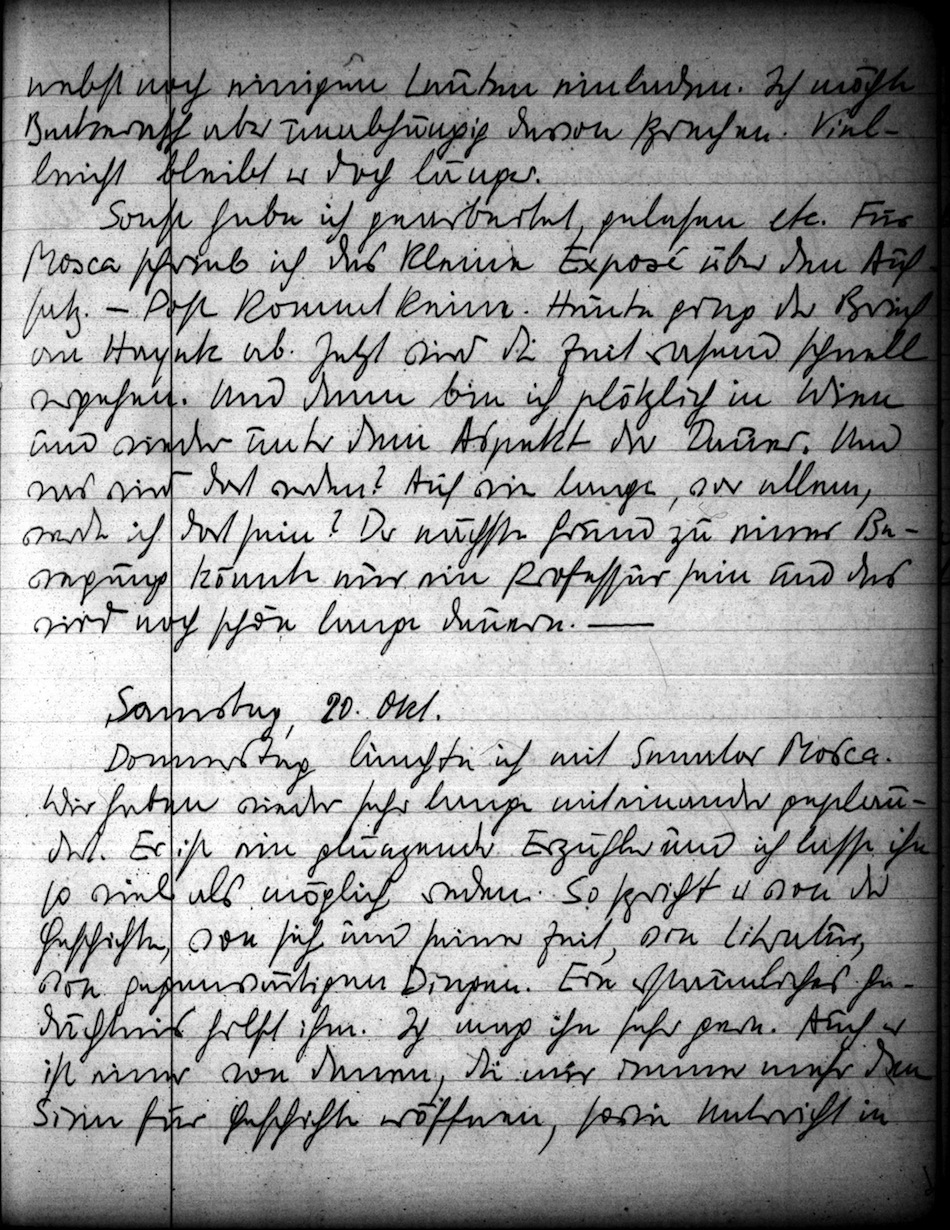 nebst noch einigen Leuten einladen. Ich möchte
aber unabhängig davon sprechen. Viel-
leicht bleibt er doch länger.
Sonst habe ich gearbeitet, gelesen etc. Für
Mosca schrieb ich das kleine Exposé über den Auf-
satz. – Post kommt keine. Heute ging der Brief
an Hayek ab. Jetzt wird die Zeit rasend schnell
vergehen. Und dann bin ich plötzlich in Wien
und wieder unter dem Aspekt der Dauer. Und
was wird dort werden? Auf wie lange, vor allem,
werde ich dort sein? Der nächste Grund zu einer Be-
wegung könnte nur eine Professur sein und das
wird noch schön lange dauern. —
Samstag, 20. Okt.
Donnerstag lunchte ich mit Senator Mosca.
Wir haben wieder sehr lange miteinander geplau-
dert. Er ist ein glänzender Erzähler und ich lasse ihn
so viel als möglich reden. So spricht er von der
Geschichte, von sich und seiner Zeit, von Literatur,
von gegenwärtigen Dingen. Ein erstaunliches Ge-
dächtnis hilft ihm. Ich mag ihn sehr gern. Auch er
ist einer von denen, die mir immer mehr den
Sinn für Geschichte eröffnen, sowie Unterricht in